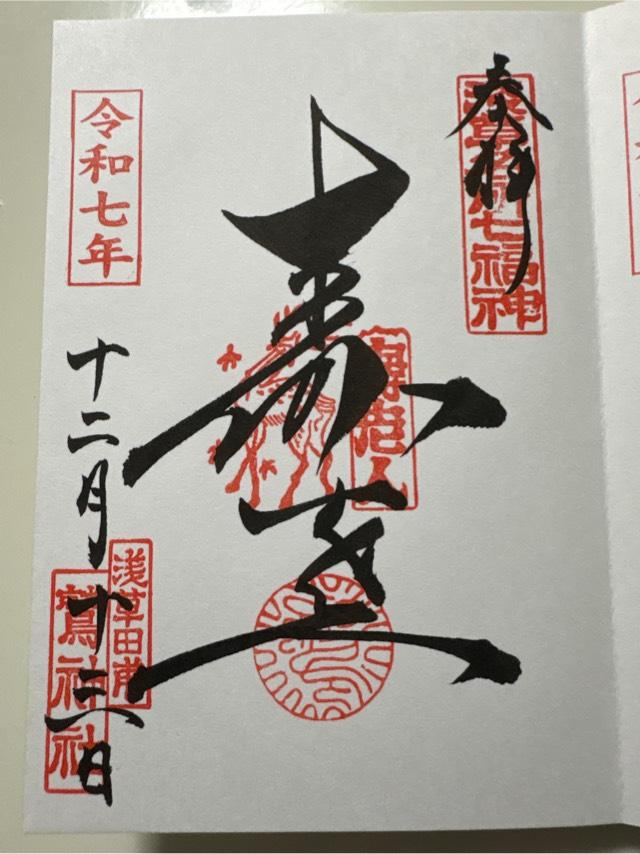 奉拝
浅草名所七福神
壽老人
令和七年
十二月十三日
浅草田甫
鷲神社